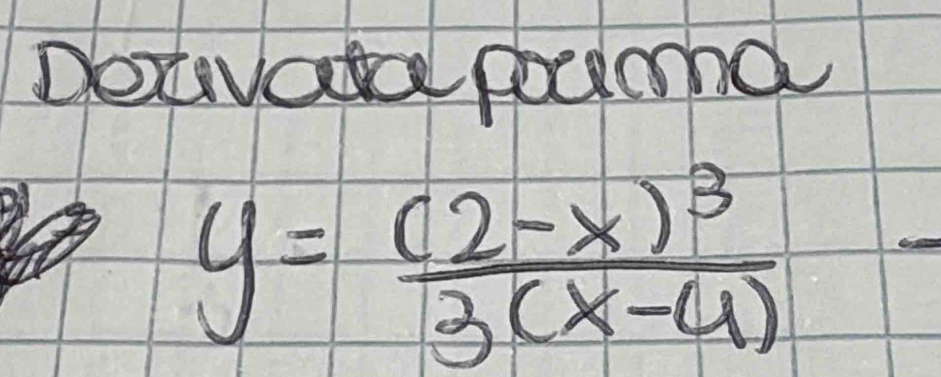 Derivata prima
y = (2-x)³ / 3(x-4) -